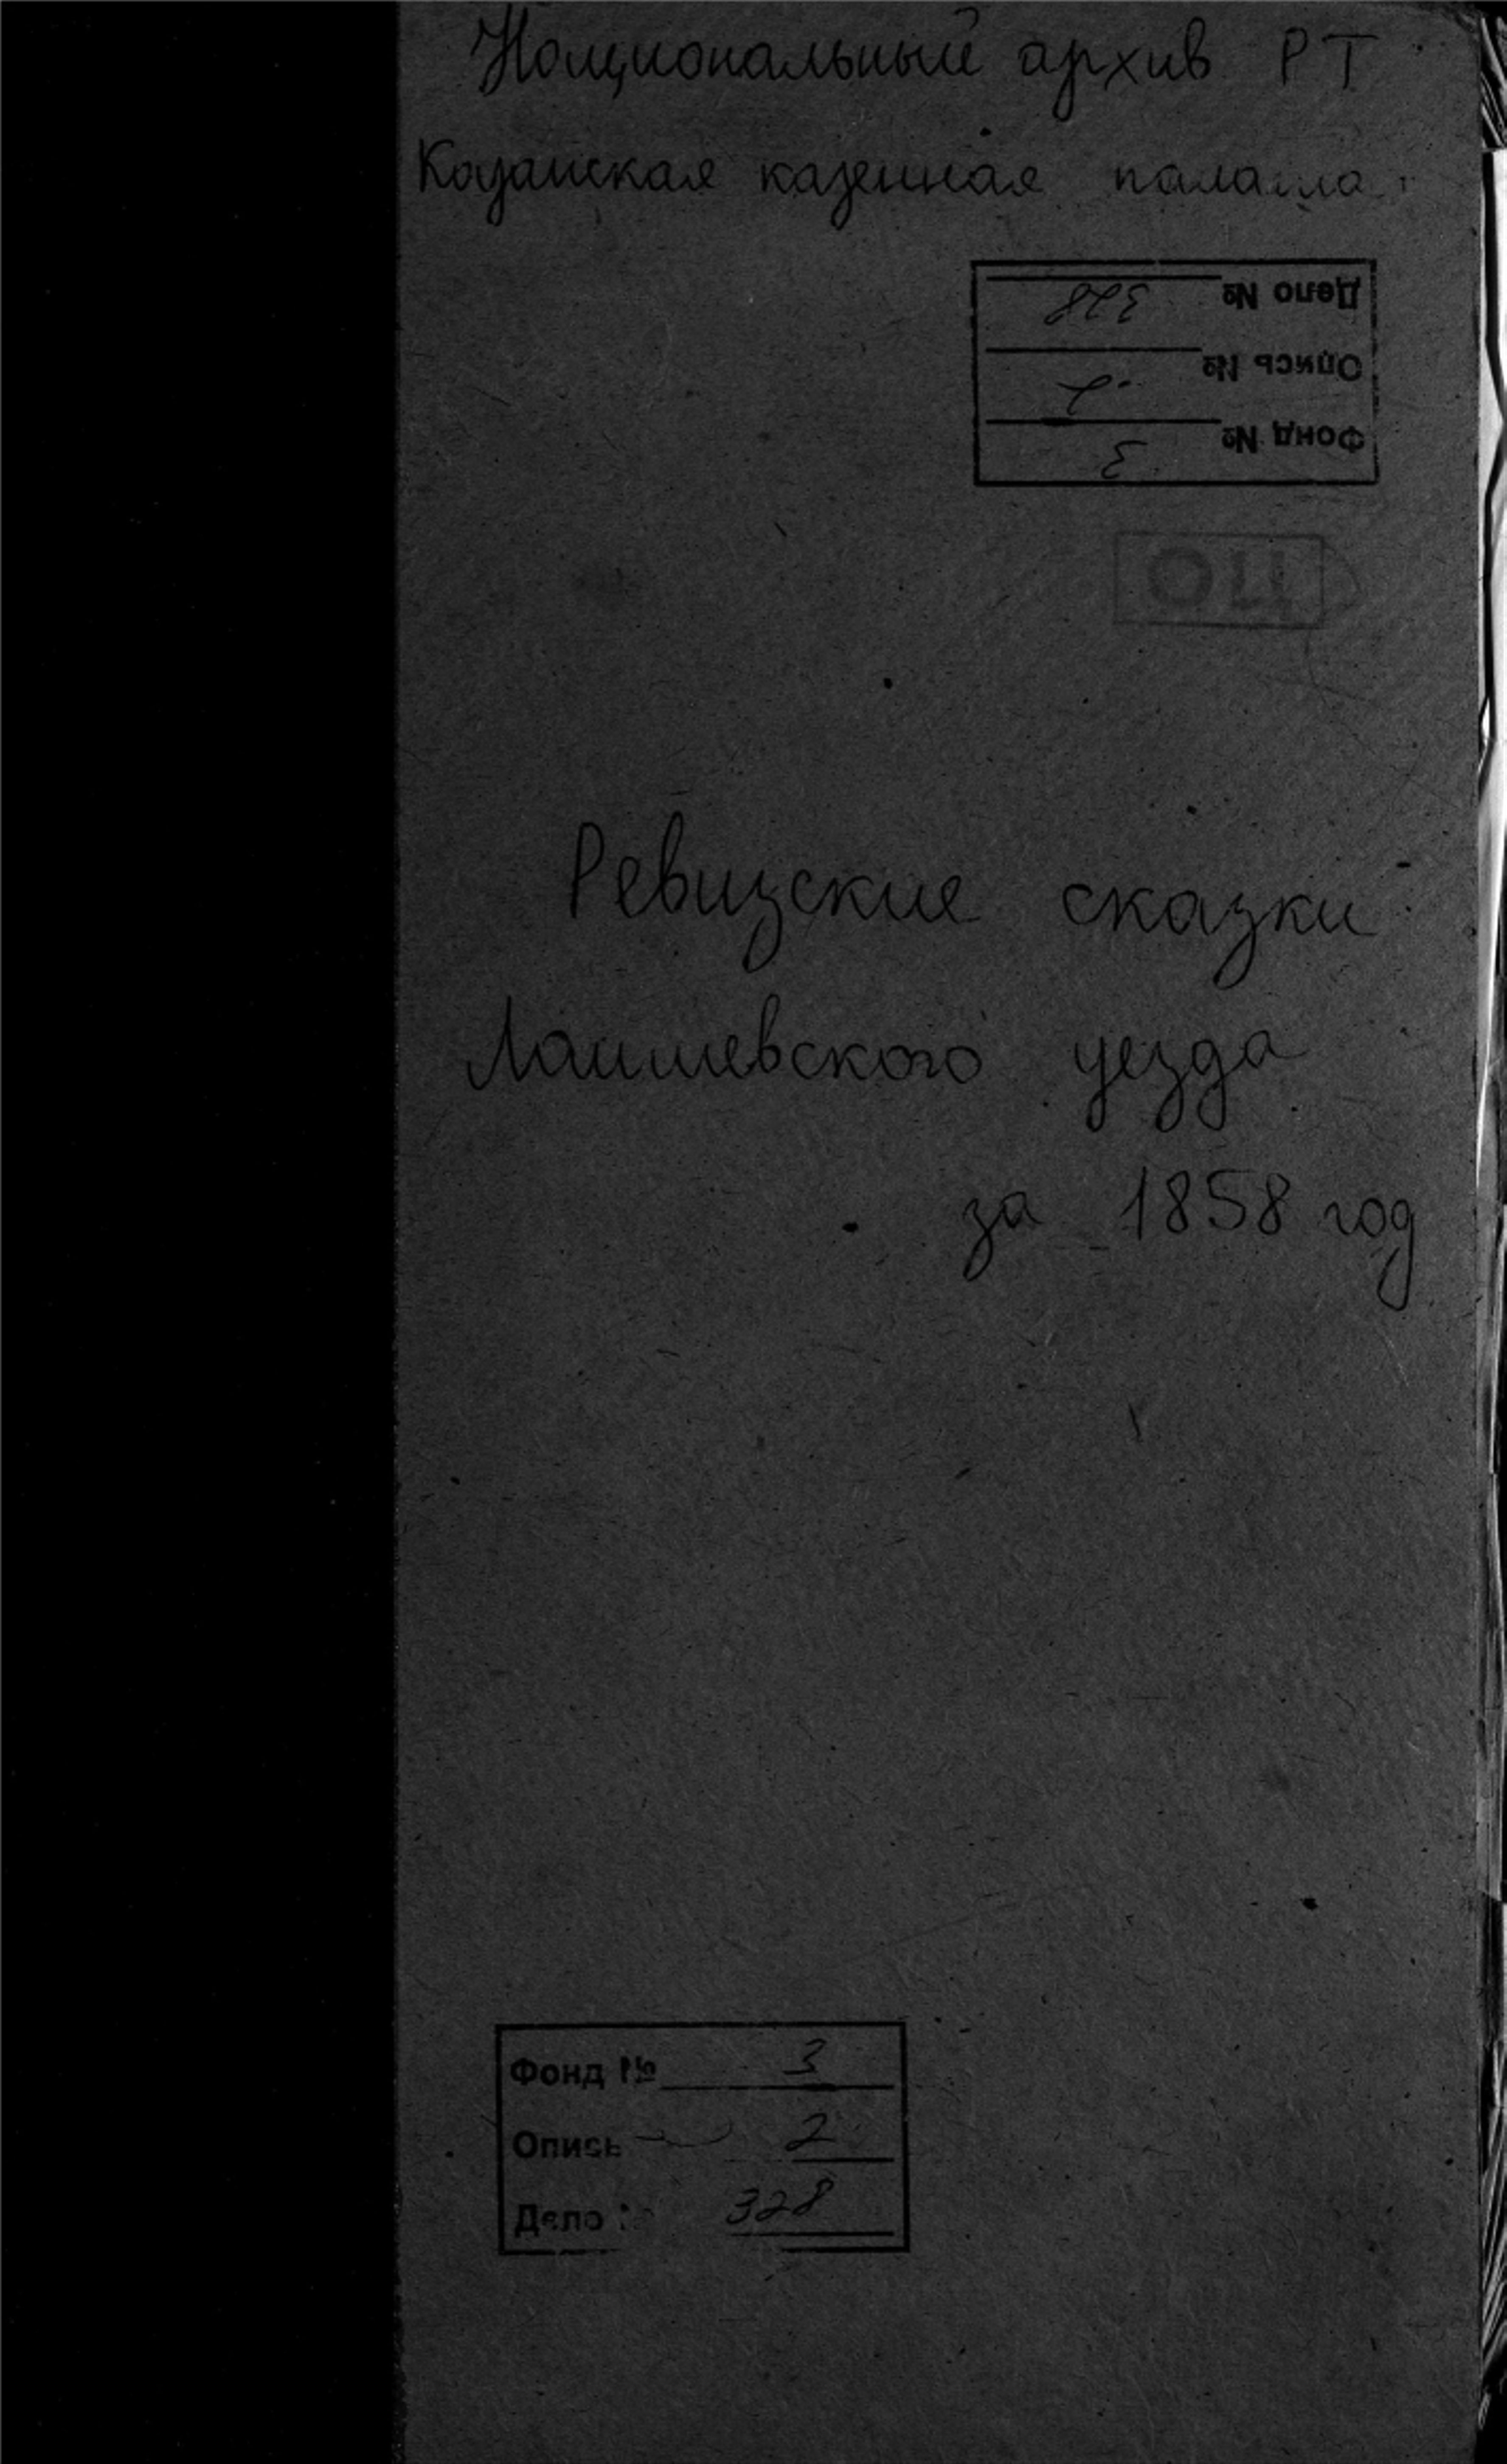 Национальный архив РТ
Казанская казенная палата
Дело № 328
Опись № 2
Фонд № 3
ОЦ
Ревизские сказки
Лаишевского уезда
за 1858 год
Фонд № 3
Опись 2
Дело 328